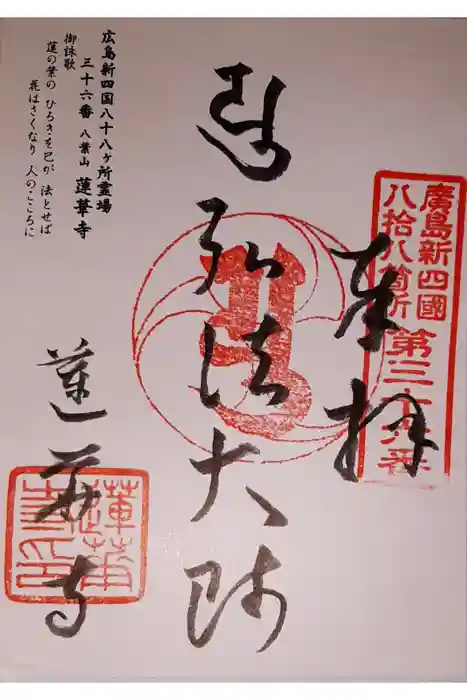 廣島新四國
八拾八箇所 第三十六番
奉拝
弘法大師
蓮華寺
広島新四国八十八ヶ所霊場
三十六番 八葉山 蓮華寺
御詠歌
蓮の葉の ひろきを己が 法とせば
花はさくなり 人のこころに